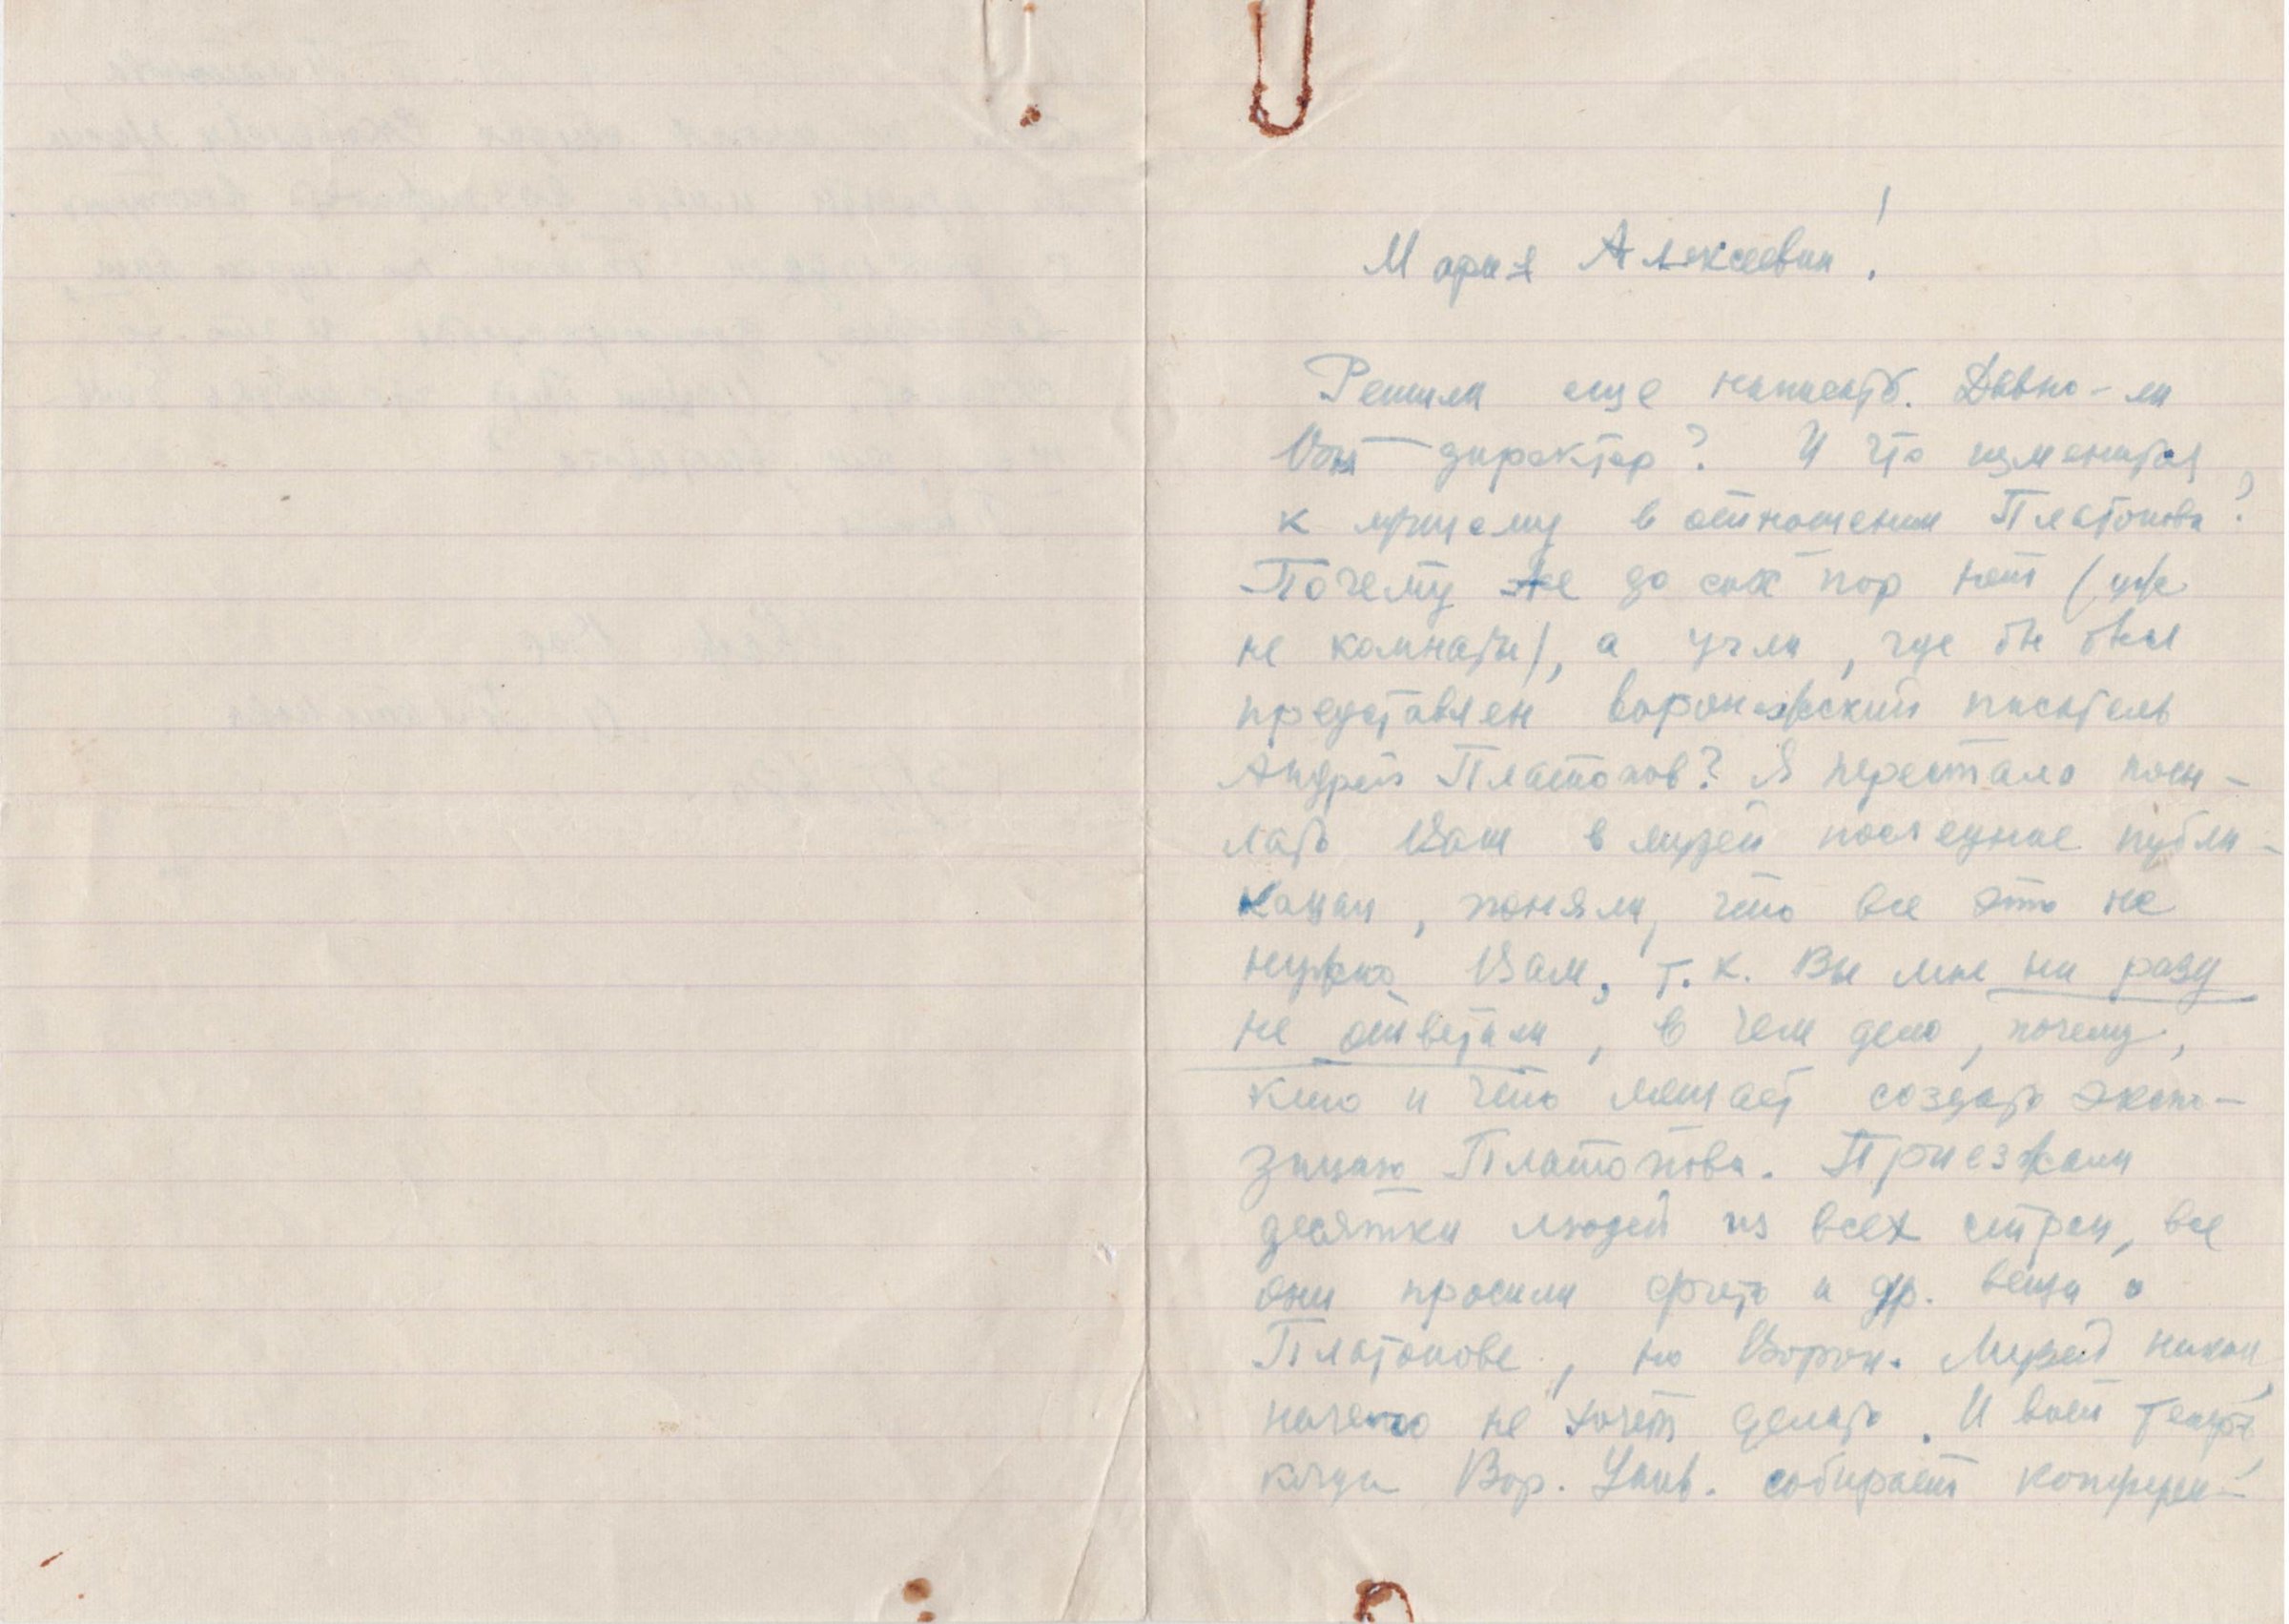 Мария Алексеевна!
Решила еще написать. Давно-ли
Вы директор? И что изменится
к лучшему в отношении Платонова?
Почему же до сих пор нет (уже
не комнаты), а угла, где бы был
представлен воронежский писатель
Андрей Платонов? Я перестала посы-
лать Вам в музей последние публи-
кации, поняла, что все это не
нужно Вам, т.к. Вы мне ни разу
не ответили, в чем дело, почему,
кто и что мешает создать экспо-
зицию Платонова. Приезжали
десятки людей из всех стран, все
они просили фото и др. вещи о
Платонове, но Ворон. Музей
ничего не хочет делать. И вот теперь,
когда Вор. Унив. собирает конферен-